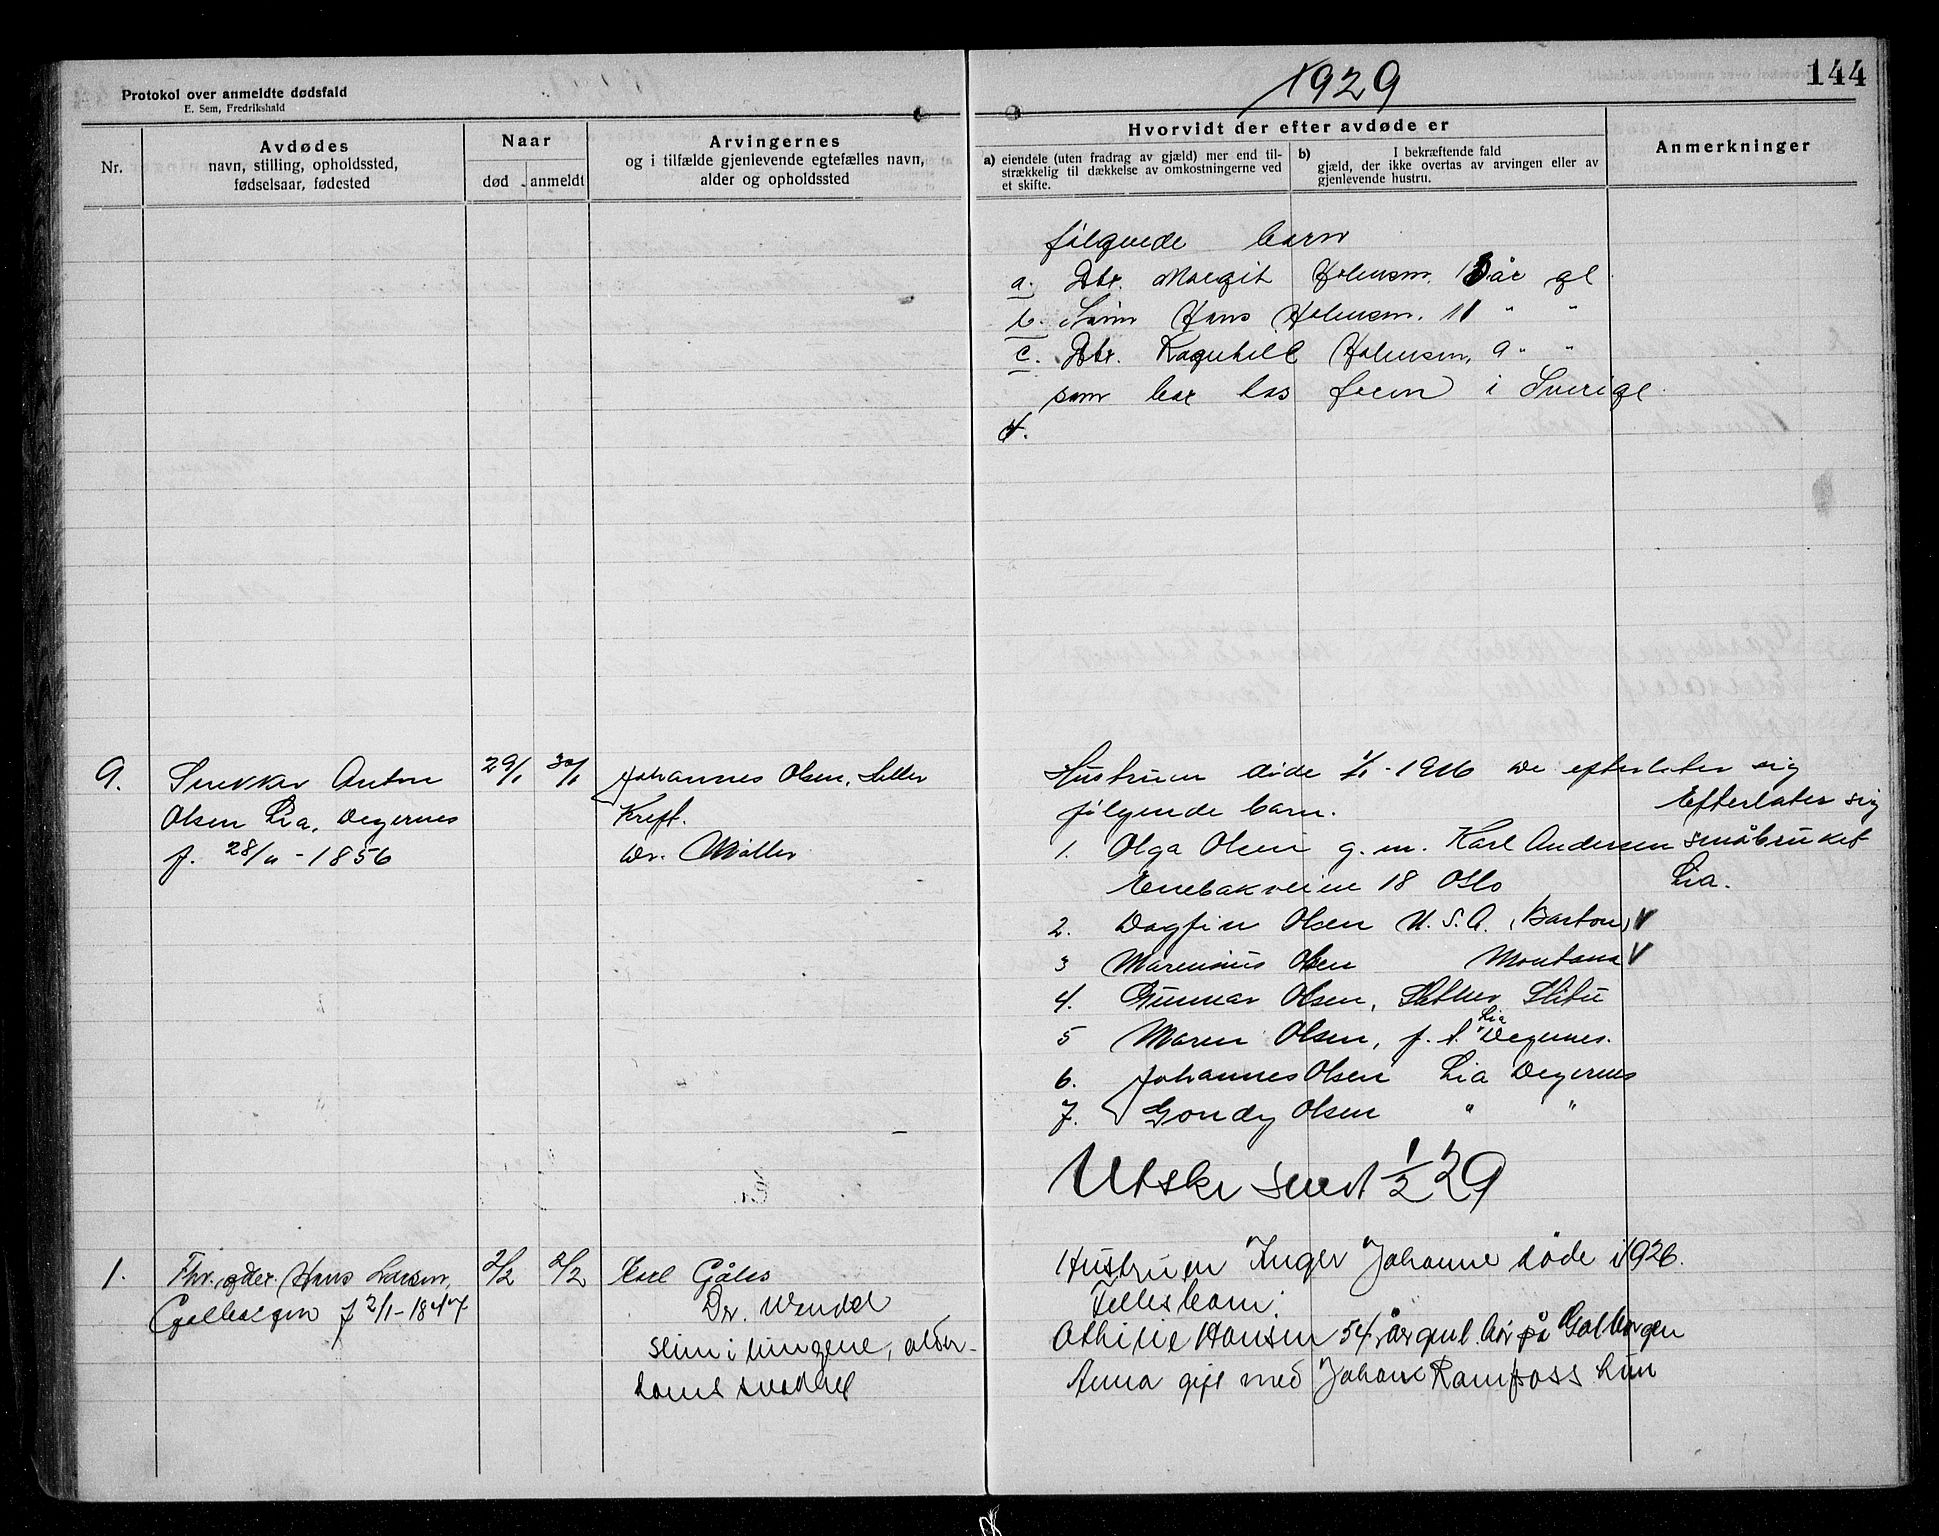 Protokol over anmeldte dødsfald
E. Sem, Fredrikshald
1929
144
Nr.
Avdødes
navn, stilling, opholdssted,
fødselsaar, fødested
Naar
død
anmeldt
Arvingernes
og i tilfælde gjenlevende egtefælles navn,
alder og opholdssted
Hvorvidt der efter avdøde er
a) eiendele (uten fradrag av gjæld) mer end til-
strækkelig til dækkelse av omkostningerne ved
et skifte.
b) I bekræftende fald
gjæld, der ikke overtas av arvingen eller av
gjenlevende hustru.
Anmerkninger
følgende barn
a. Dtr. Margit Johansen, 13 år gl
b. Sønn Hans Johansen, 11 " "
c. Dtr. Ragnhild Johansen, 9 " "
som bor hos faren i Sverige
d.
9. Snekker Anton
Olsen Lia, Degernes
f. 28/11 - 1856
29/1 30/1
Johannes Olsen,
Kreft.
Dr. Møller
Hustruen døde 1/1 - 1916 De efterlater sig
følgende barn.
1. Olga Olsen g. m. Karl Andersen
Enebakveien 18 Oslo
2. Dagfin Olsen U.S.A. (Barton) V
3 Marenius Olsen Montana V
4. Gunnar Olsen,
5 Maren Olsen, f. t. Lia Degernes.
6. Johannes Olsen Lia Degernes
7. Gondy Olsen " "
Efterlater sig
småbruket
Lia.
Utskr sendt 1/2 29
1. Fhv. gdbr. Hans Larsen,
Galbergen f 2/1 - 1847
2/2 2/2
Karl
Dr. Wendel
slim i lungene, alder-
doms svakhet
Hustruen Inger Johanne døde i 1926.
Felles barn:
Othilie Hansen 54 år gml. bor på Galbergen
Anna gift med Johan Ramfoss hun